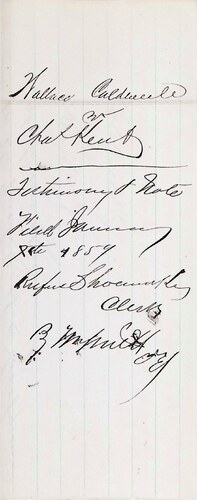 Wallace Caldwell
vs
Chas Kent
Testimony & Note
Filed January
7th 1857
Rufus Shoemaker
Clerk
By Wm Smith Dy